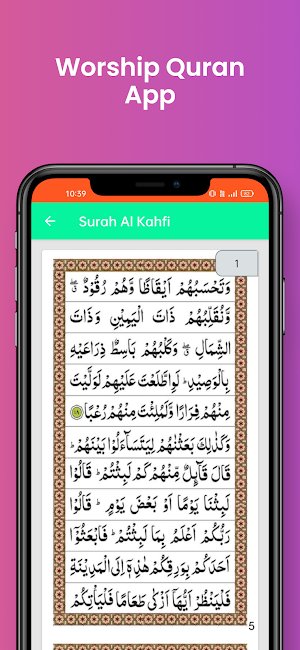 Worship Quran
App
10:39
52
Surah Al Kahfi
1
وَتَحْسَبُهُمْ اَيْقَاظًا وَّهُمْ رُقُوْدٌ ۖ
وَّنُقَلِّبُهُمْ ذَاتَ الْيَمِيْنِ وَذَاتَ
الشِّمَالِ ۖ وَكَلْبُهُمْ بَاسِطٌ ذِرَاعَيْهِ
بِالْوَصِيْدِ ؕ لَوِاطَّلَعْتَ عَلَيْهِمْ لَوَلَّيْتَ
مِنْهُمْ فِرَارًا وَّلَمُلِئْتَ مِنْهُمْ رُعْبًا ١٨
وَكَذٰلِكَ بَعَثْنٰهُمْ لِيَتَسَآءَلُوْا بَيْنَهُمْ ؕ
قَالَ قَآئِلٌ مِّنْهُمْ كَمْ لَبِثْتُمْ ؕ قَالُوْا
لَبِثْنَا يَوْمًا اَوْ بَعْضَ يَوْمٍ ؕ قَالُوْا
رَبُّكُمْ اَعْلَمُ بِمَا لَبِثْتُمْ ؕ فَابْعَثُوْٓا
اَحَدَكُمْ بِوَرِقِكُمْ هٰذِهٖٓ اِلَى الْمَدِيْنَةِ
فَلْيَنْظُرْ اَيُّهَآ اَزْكٰى طَعَامًا فَلْيَاْتِكُمْ
5